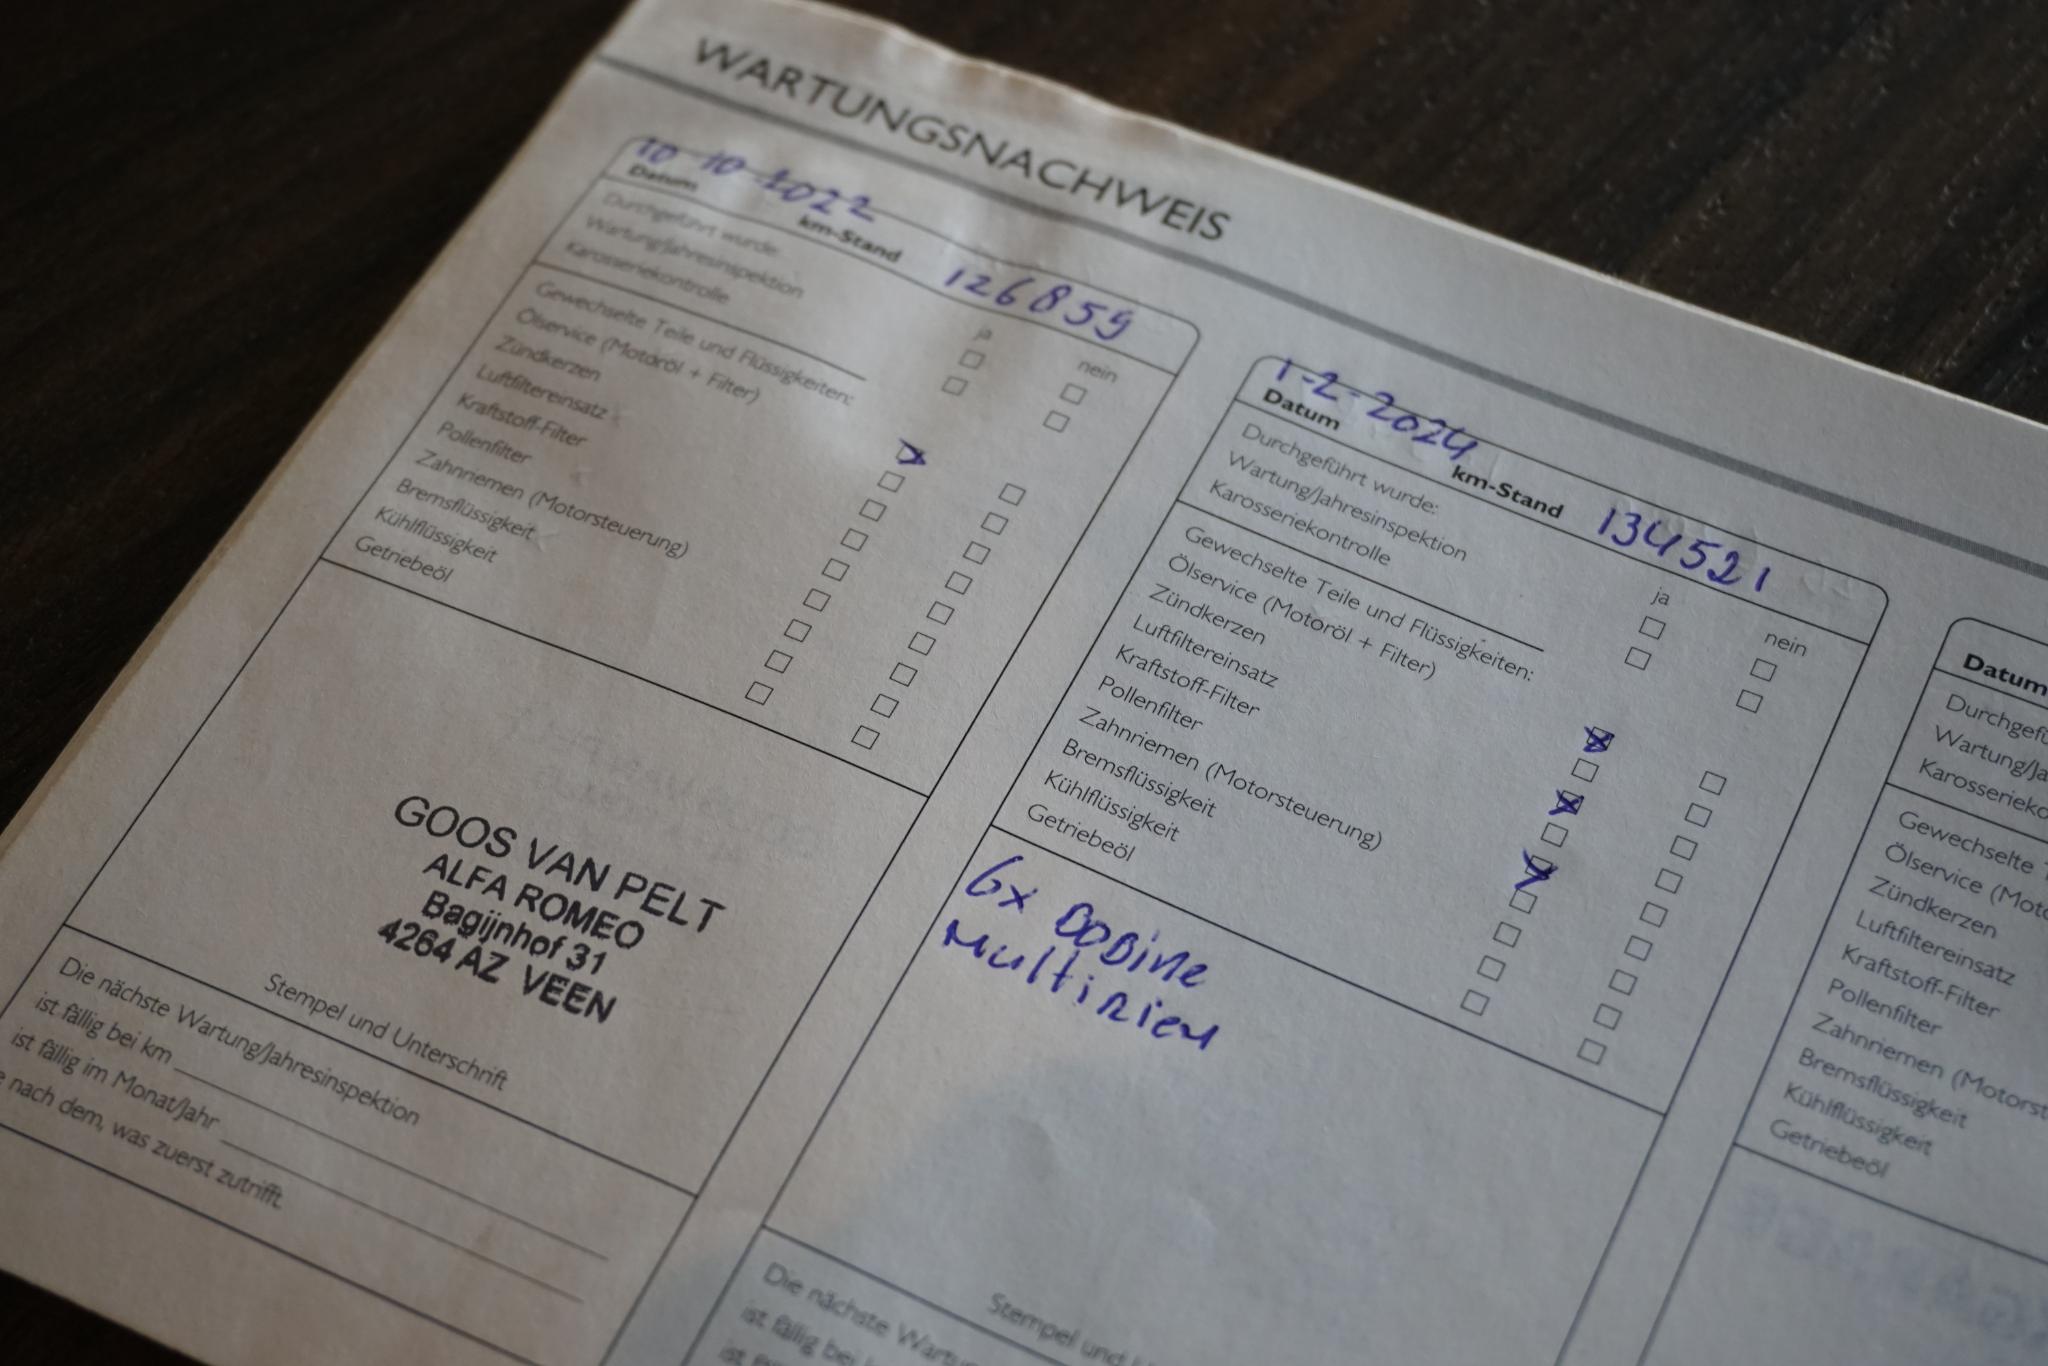 WARTUNGSNACHWEIS
10-10-2022
Datum
km-Stand 126859
Durchgeführt wurde:
Wartung/Jahresinspektion
Karosseriekontrolle
ja nein
Gewechselte Teile und Flüssigkeiten:
Ölservice (Motoröl + Filter)
Zündkerzen
Luftfiltereinsatz
Kraftstoff-Filter
Pollenfilter
Zahnriemen (Motorsteuerung)
Bremsflüssigkeit
Kühlflüssigkeit
Getriebeöl
GOOS VAN PELT
ALFA ROMEO
Bagijnhof 31
4264 AZ VEEN
Stempel und Unterschrift
Die nächste Wartung/Jahresinspektion
ist fällig bei km
ist fällig im Monat/Jahr
nach dem, was zuerst zutrifft
1-2-2024
Datum
km-Stand 134521
Durchgeführt wurde:
Wartung/Jahresinspektion
Karosseriekontrolle
ja nein
Gewechselte Teile und Flüssigkeiten:
Ölservice (Motoröl + Filter)
Zündkerzen
Luftfiltereinsatz
Kraftstoff-Filter
Pollenfilter
Zahnriemen (Motorsteuerung)
Bremsflüssigkeit
Kühlflüssigkeit
Getriebeöl
6x BOBiNe
MultiRiem
Stempel und
Die nächste Wartu
ist fällig bei
Datum
Durchgefü
Wartung/Ja
Karosserieko
Gewechselte
Ölservice (Moto
Zündkerzen
Luftfiltereinsatz
Kraftstoff-Filter
Pollenfilter
Zahnriemen (Motorst
Bremsflüssigkeit
Kühlflüssigkeit
Getriebeöl